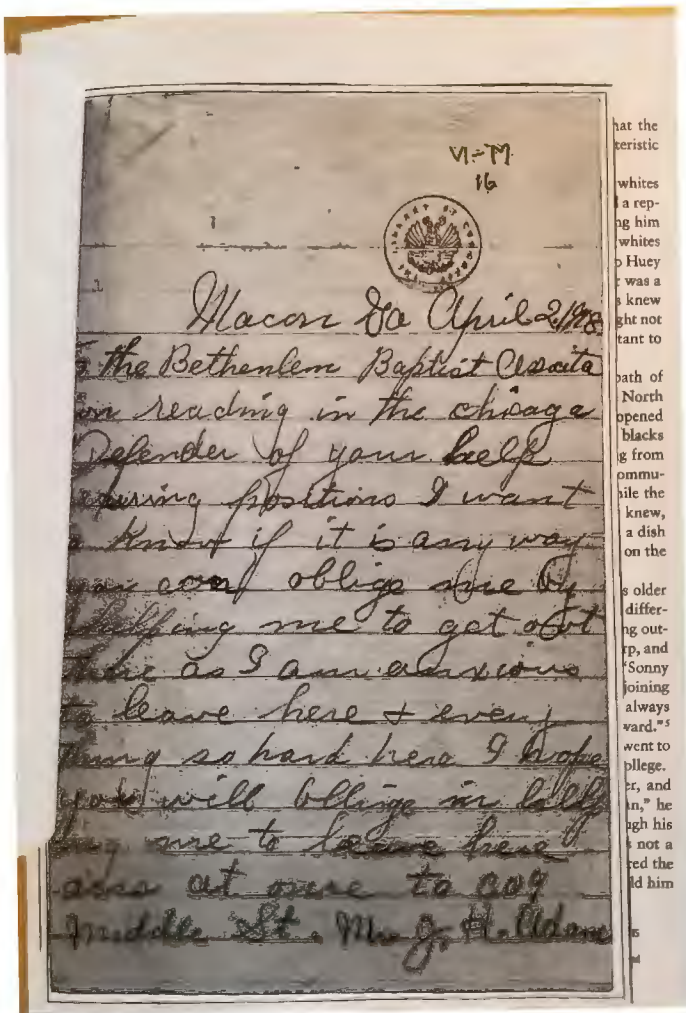 VI-M
16
LIBRARY OF CONGRESS
Macon Ga April 2, 1918
the Bethenlem Baptist Asscita
on reading in the chicago
Defender of your help
securing positions I want
to know if it is any way
you can oblige me by
helping me to get out
there as I am anxious
to leave here + every
thing so hard here I hope
you will oblige in help
ing me to leave here
ans at once to 609
Middle St. Mr J. H. Adams
hat the
teristic
whites
a rep-
ng him
whites
Huey
was a
knew
ght not
tant to
path of
North
opened
blacks
g from
ommu-
ile the
knew,
a dish
on the
s older
differ-
ng out-
rp, and
"Sonny
joining
always
ward."5
went to
ollege.
er, and
in," he
ugh his
not a
red the
ld him